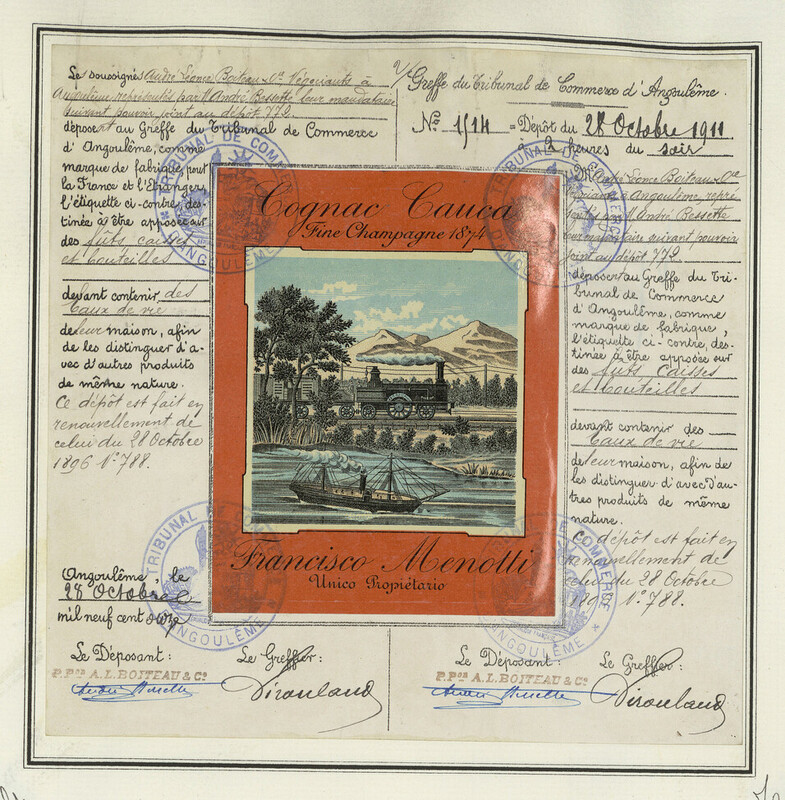 Les soussignés André Léonce Boiteau & Cie Négociants à
Angoulême représentés par Mr André Bessette leur mandataire
suivant pouvoir joint au dépôt 772
déposent au Greffe du Tribunal de Commerce
d'Angoulême, comme
marque de fabrique, pour
la France et l'Etranger,
l'étiquette ci-contre, des-
tinée à être apposée sur
des fûts caisses
et bouteilles
devant contenir des
Eaux de vie
de leur maison, afin
de les distinguer d'a-
vec d'autres produits
de même nature.
Ce dépôt est fait en
renouvellement de
celui du 28 Octobre
1896 N° 788.
Angoulême, le
28 Octobre
mil neuf cent onze
Le Déposant:
Le Greffier:
P. Pon A. L. BOITEAU & Co
Cognac Cauca
Fine Champagne 1874
Francisco Menotti
Unico Propiétario
Greffe du Tribunal de Commerce d'Angoulême.
N° 1514 = Dépôt du 28 Octobre 1911
à 2 heures du soir
Mr André Léonce Boiteau & Cie
Négociants Angoulême, repré
sentés par Mr André Bessette
leur mandataire suivant pouvoir
joint au dépôt 772
déposer au Greffe du Tri-
bunal de Commerce
d'Angoulême, comme
marque de fabrique,
l'étiquette ci-contre, des-
tinée à être apposée sur
des fûts caisses
et bouteilles
devant contenir des
Eaux de vie
de leur maison, afin de
les distinguer d'avec d'au-
tres produits de même
nature.
Ce dépôt est fait en
renouvellement de
celui du 28 Octobre
1896 N° 788.
Le Déposant:
Le Greffier:
P. Pon A. L. BOITEAU & Co
TRIBUNAL DE COMMERCE
D'ANGOULÊME